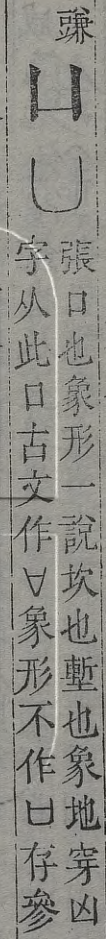 豏
凵 凵
張口也象形一說坎也塹也象地穿凶
字从此口古文作∀象形不作凵存參